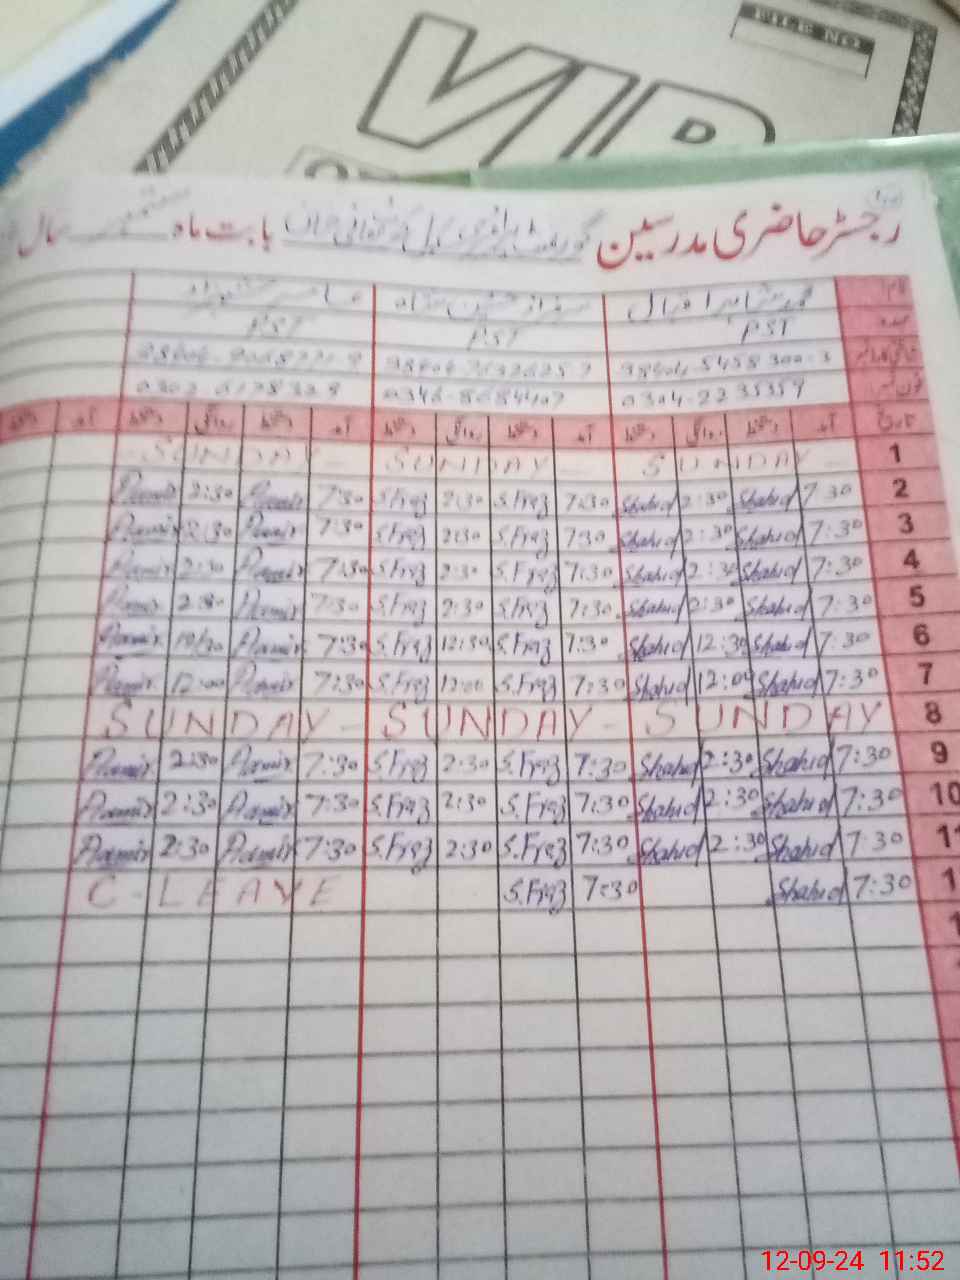 VIP
رجسٹر حاضری مدرسین گورنمنٹ پرائمری سکول بابت ماہ ستمبر سال
نام
PST PST PST
38404-5458300-3
0304-2235359 0346-8684407 0302 6178328
تاریخ آمد دستخط روانگی دستخط آمد دستخط روانگی دستخط آمد دستخط روانگی دستخط آمد دستخط
SUNDAY - SUNDAY - SUNDAY - 1
Aamir 2:30 Aamir 7:30 S.Fraz 2:30 S.Fraz 7:30 Shahid 2:30 Shahid 7:30 2
Aamir 2:30 Aamir 7:30 S.Fraz 2:30 S.Fraz 7:30 Shahid 2:30 Shahid 7:30 3
Aamir 2:30 Aamir 7:30 S.Fraz 2:30 S.Fraz 7:30 Shahid 2:30 Shahid 7:30 4
Aamir 2:30 Aamir 7:30 S.Fraz 2:30 S.Fraz 7:30 Shahid 2:30 Shahid 7:30 5
Aamir Aamir 7:30 S.Fraz 12:30 S.Fraz 7:30 Shahid 12:30 Shahid 7:30 6
Aamir 12:00 Aamir 7:30 S.Fraz 12:00 S.Fraz 7:30 Shahid 12:00 Shahid 7:30 7
SUNDAY - SUNDAY - SUNDAY 8
Aamir 2:30 Aamir 7:30 S.Fraz 2:30 S.Fraz 7:30 Shahid 2:30 Shahid 7:30 9
Aamir 2:30 Aamir 7:30 S.Fraz 2:30 S.Fraz 7:30 Shahid 2:30 Shahid 7:30 10
Aamir 2:30 Aamir 7:30 S.Fraz 2:30 S.Fraz 7:30 Shahid 2:30 Shahid 7:30 11
C-LEAVE S.Fraz 7:30 Shahid 7:30 1
1
12-09-24 11:52